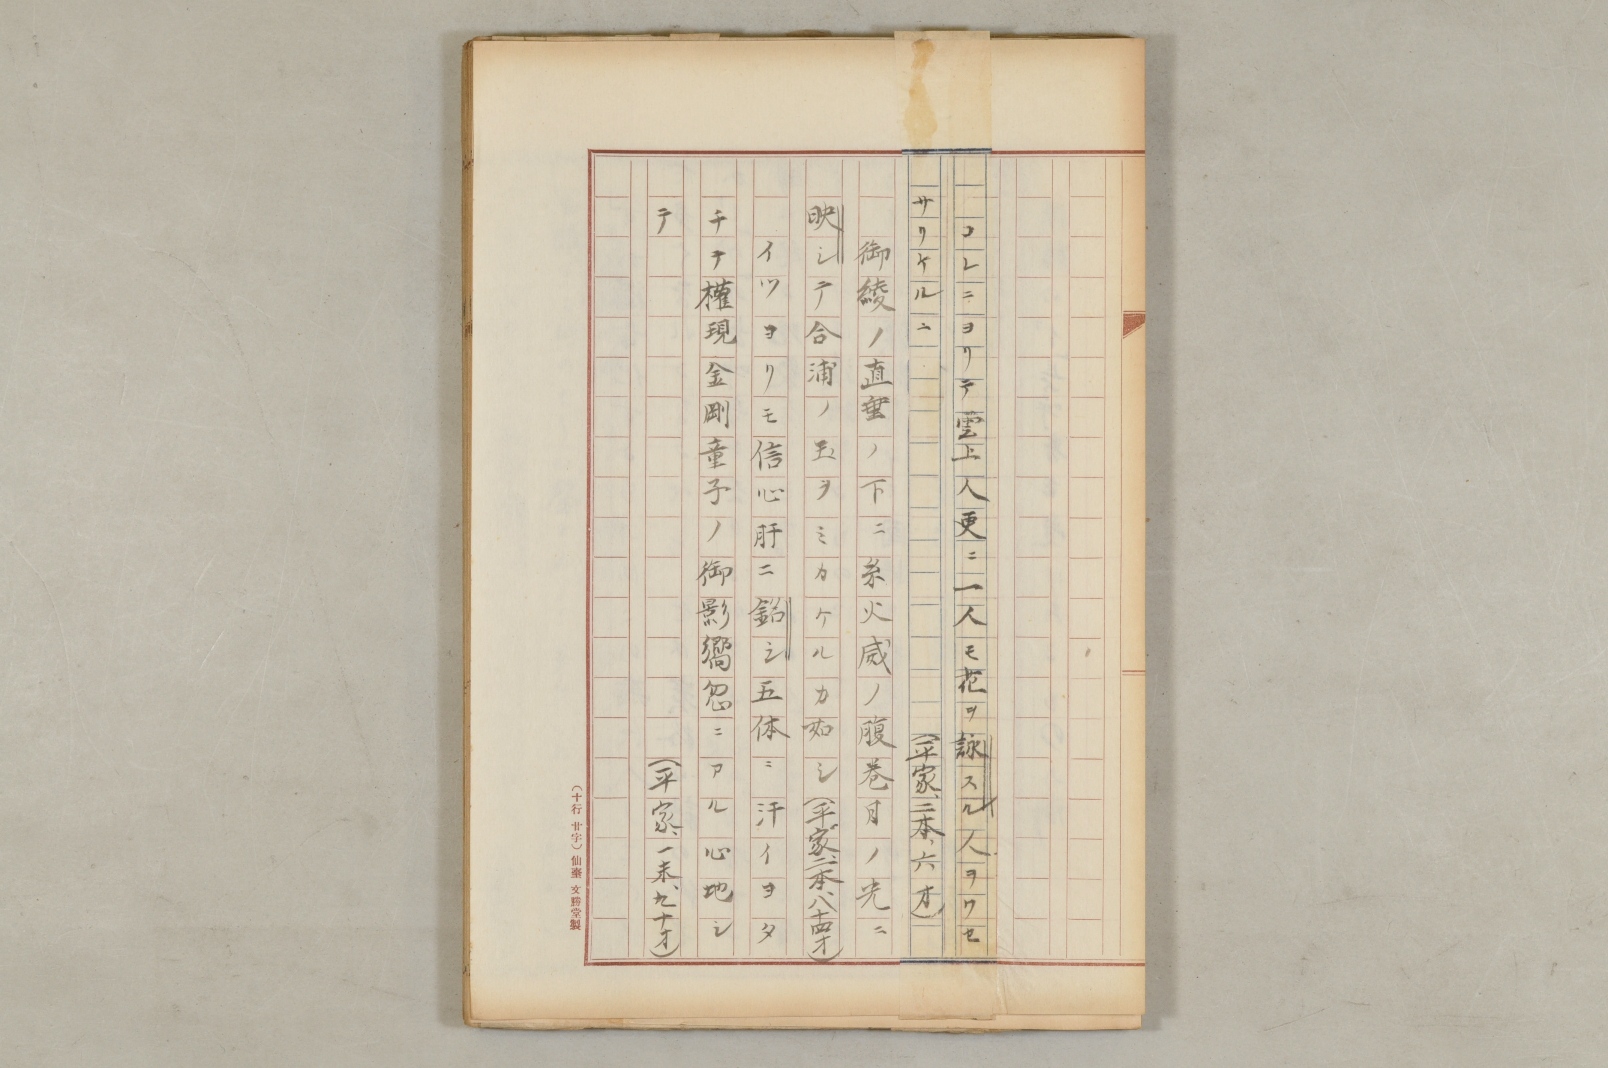 コレニヨリテ雲上人更ニ一人モ花ヲ詠スル人ヲワセ
サリケルニ(平家、二本、六オ)
御綾ノ直垂ノ下ニ糸火威ノ腹巻月ノ光ニ
映シテ合浦ノ玉ヲミカケルカ如シ(平家、二本、八十四オ)
イツヨリモ信心肝ニ銘シ五体ニ汗イヨタ
チテ權現金剛童子ノ御影嚮忽ニアル心地シ
テ(平家、一末、九十オ)
(十行 廿字)仙臺 文勝堂製